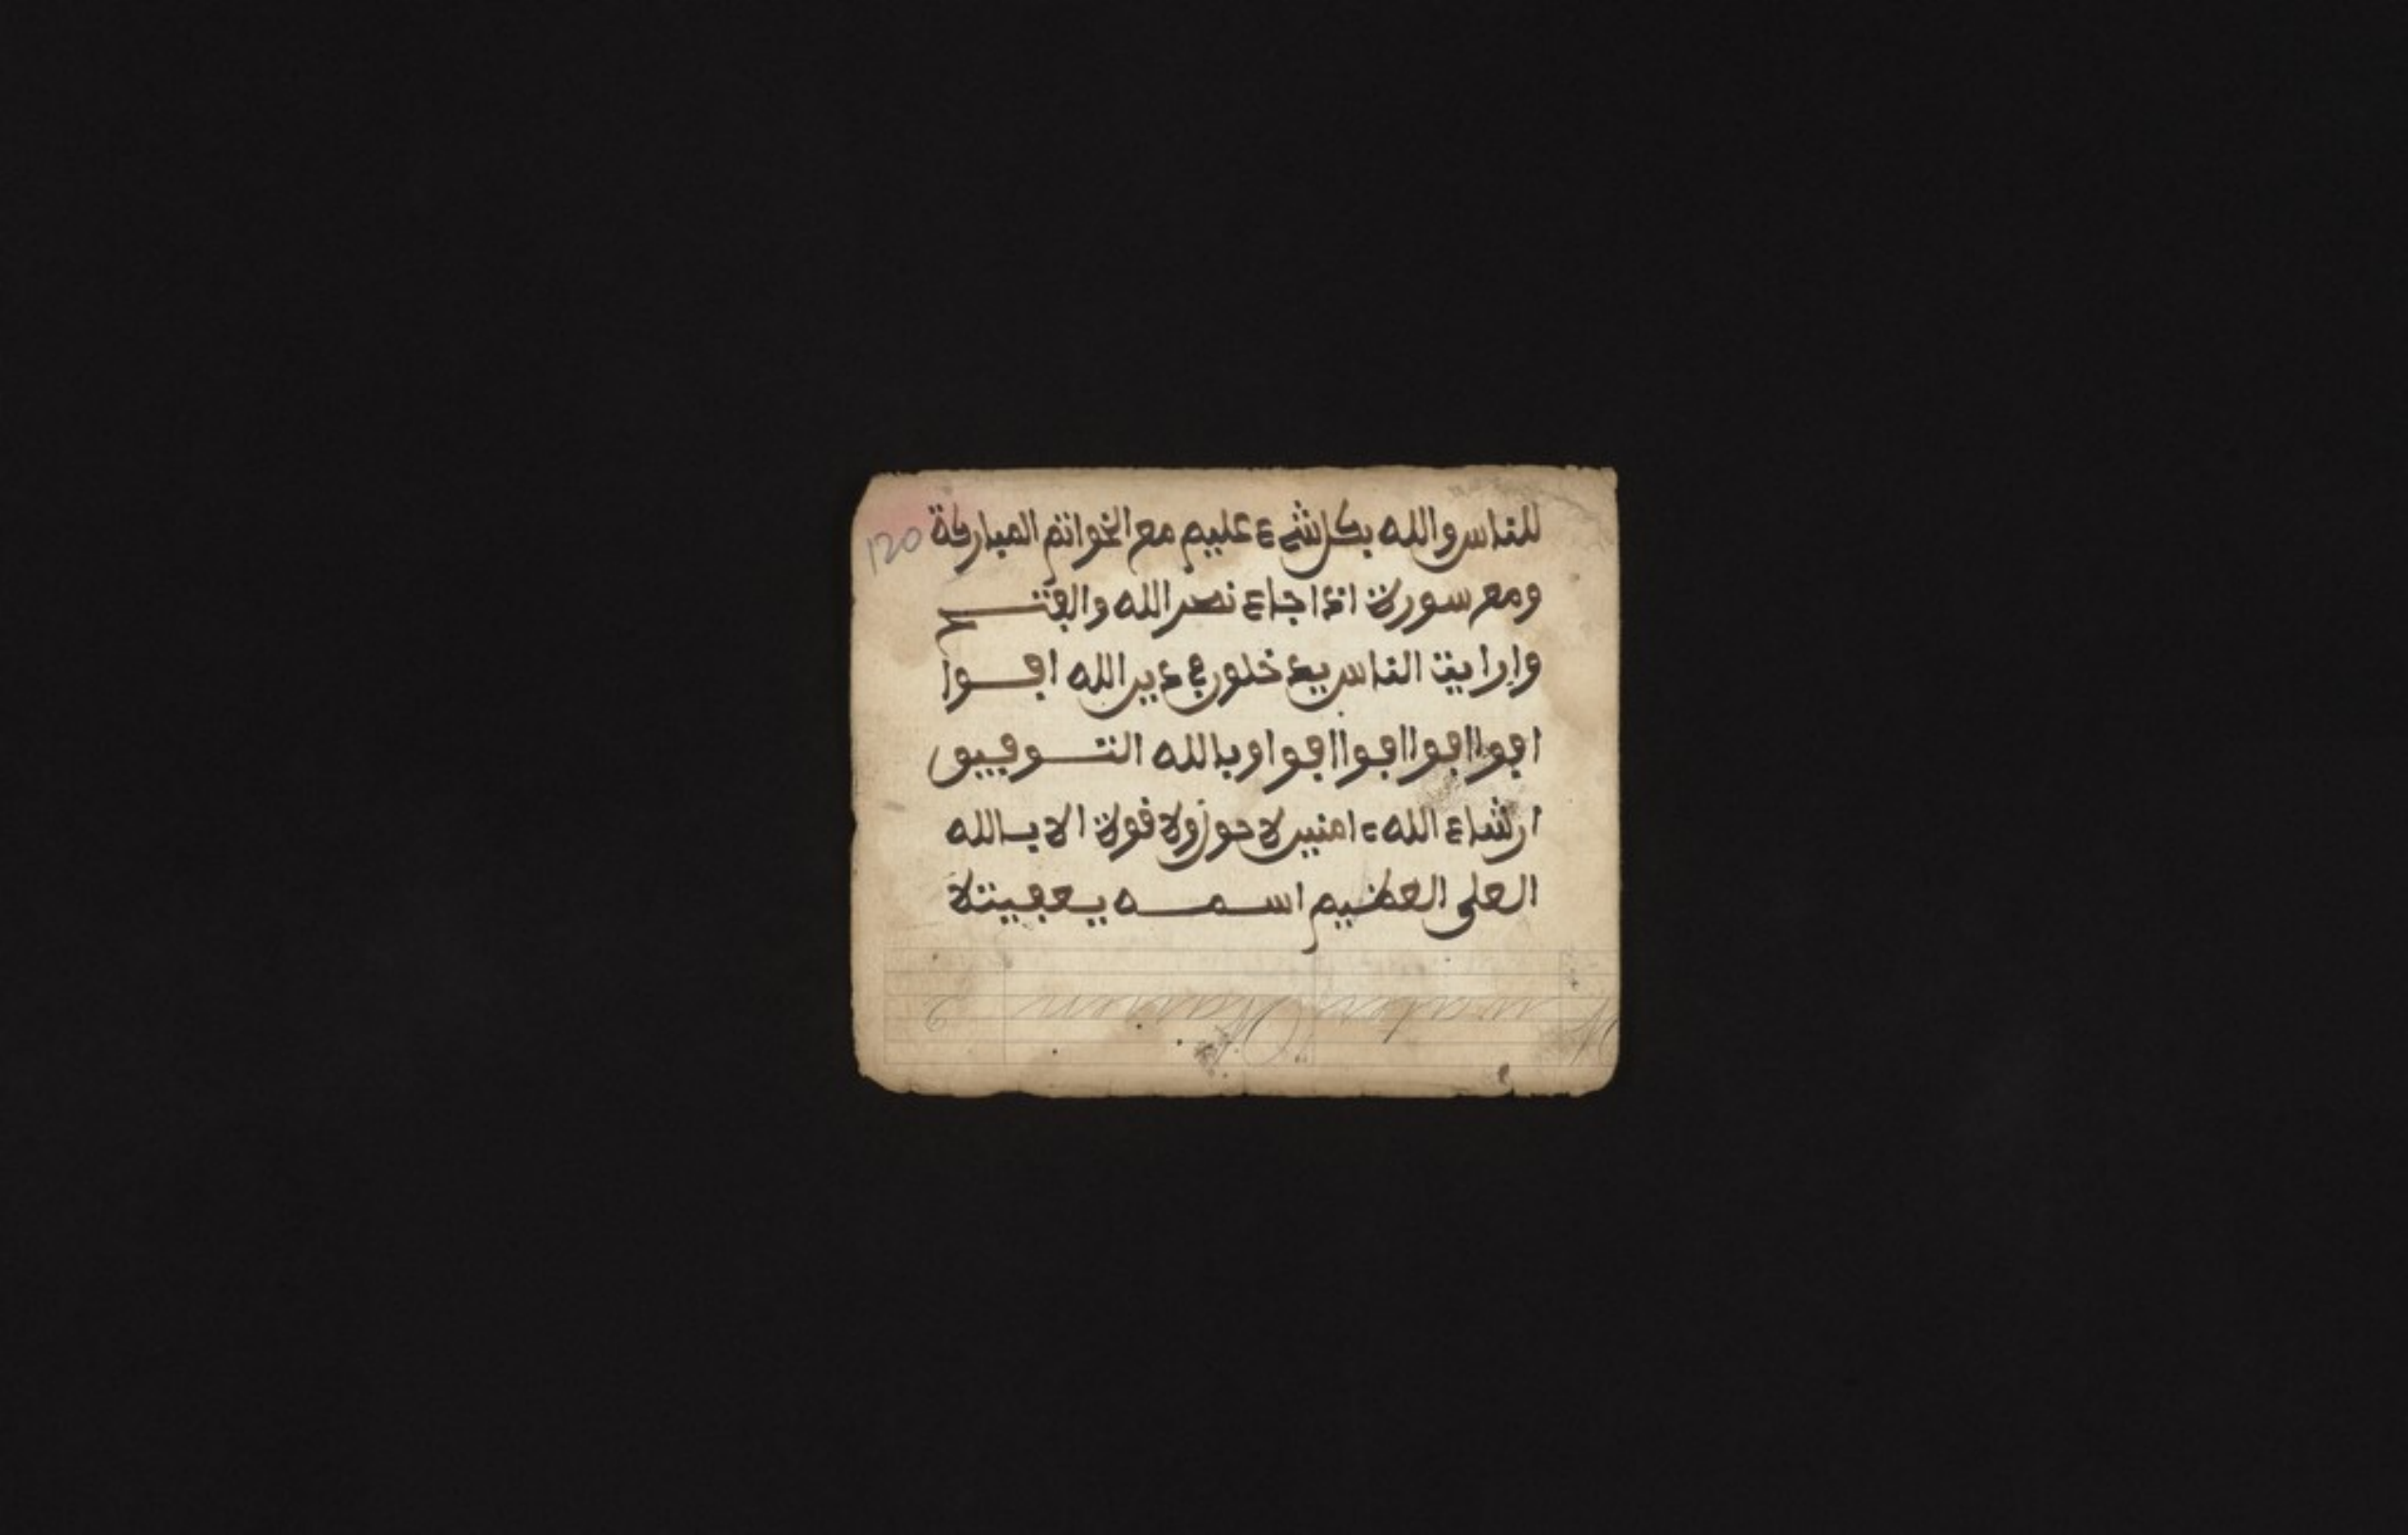 للناس والله بكل شيء عليم مع الخواتم المباركة
120
ومع سورة اذا جاء نصر الله والفتح
وارايت الناس يدخلون في دين الله افوا
افوا افوا افوا افوا افوا وبالله التوفيق
ان شاء الله ءامنين لا حول ولا قوة الا بالله
العلي العظيم اسمه
2